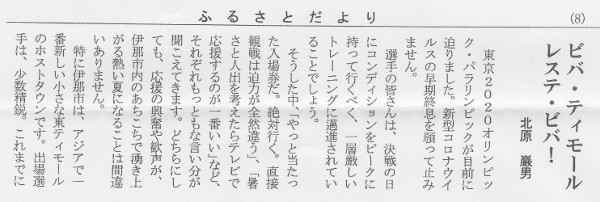 (8)
ふるさとだより
ビバ・ティモール
レステ・ビバ！
北原　巖男
東京２０２０オリンピッ
ク・パラリンピックが目前に
迫りました。新型コロナウイ
ルスの早期終息を願って止み
ません。
選手の皆さんは、決戦の日
にコンディションをピークに
持って行くべく、一層厳しい
トレーニングに邁進されてい
ることでしょう。
そうした中、「やっと当たっ
た入場券だ。絶対行く。直接
観戦は迫力が全然違う」、「暑
さと人出を考えたらテレビで
応援するのが一番いい」など、
それぞれもっともな言い分が
聞こえてきます。どちらにし
ても、応援の興奮や歓声が、
伊那市内のあちこちで湧き上
がる熱い夏になることは間違
いありません。
特に伊那市は、アジアで一
番新しい小さな東ティモール
のホストタウンです。出場選
手は、少数精鋭。これまでに